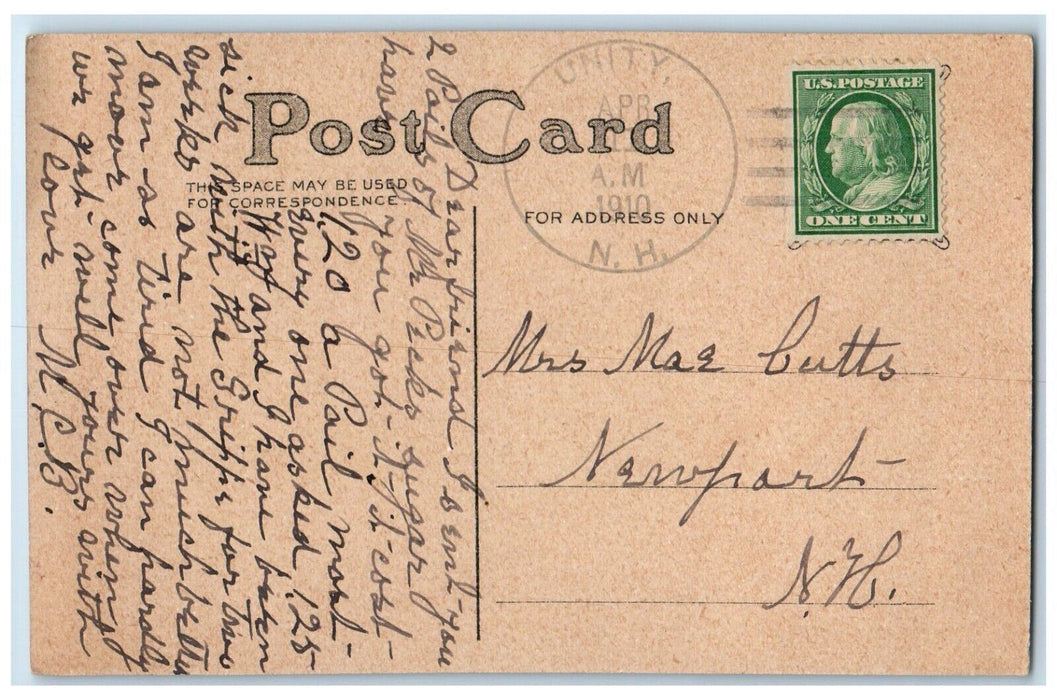 Post Card
THIS SPACE MAY BE USED
FOR CORRESPONDENCE.
FOR ADDRESS ONLY
UNITY,
APR
A.M
1910
N. H.
U.S. POSTAGE
ONE CENT
Mrs Mae Cutts
Newport
N.H.
Dear friend I sent you
2 Pails of Mr Pecks sugar I
have you got it it cost
1,20 a Pail most
every one asked 1,25
and I have been
sick with the Gripp for two
weeks are not much better
I am so tired I can hardly
move come over when you
we get well yours with
love M.C.B.